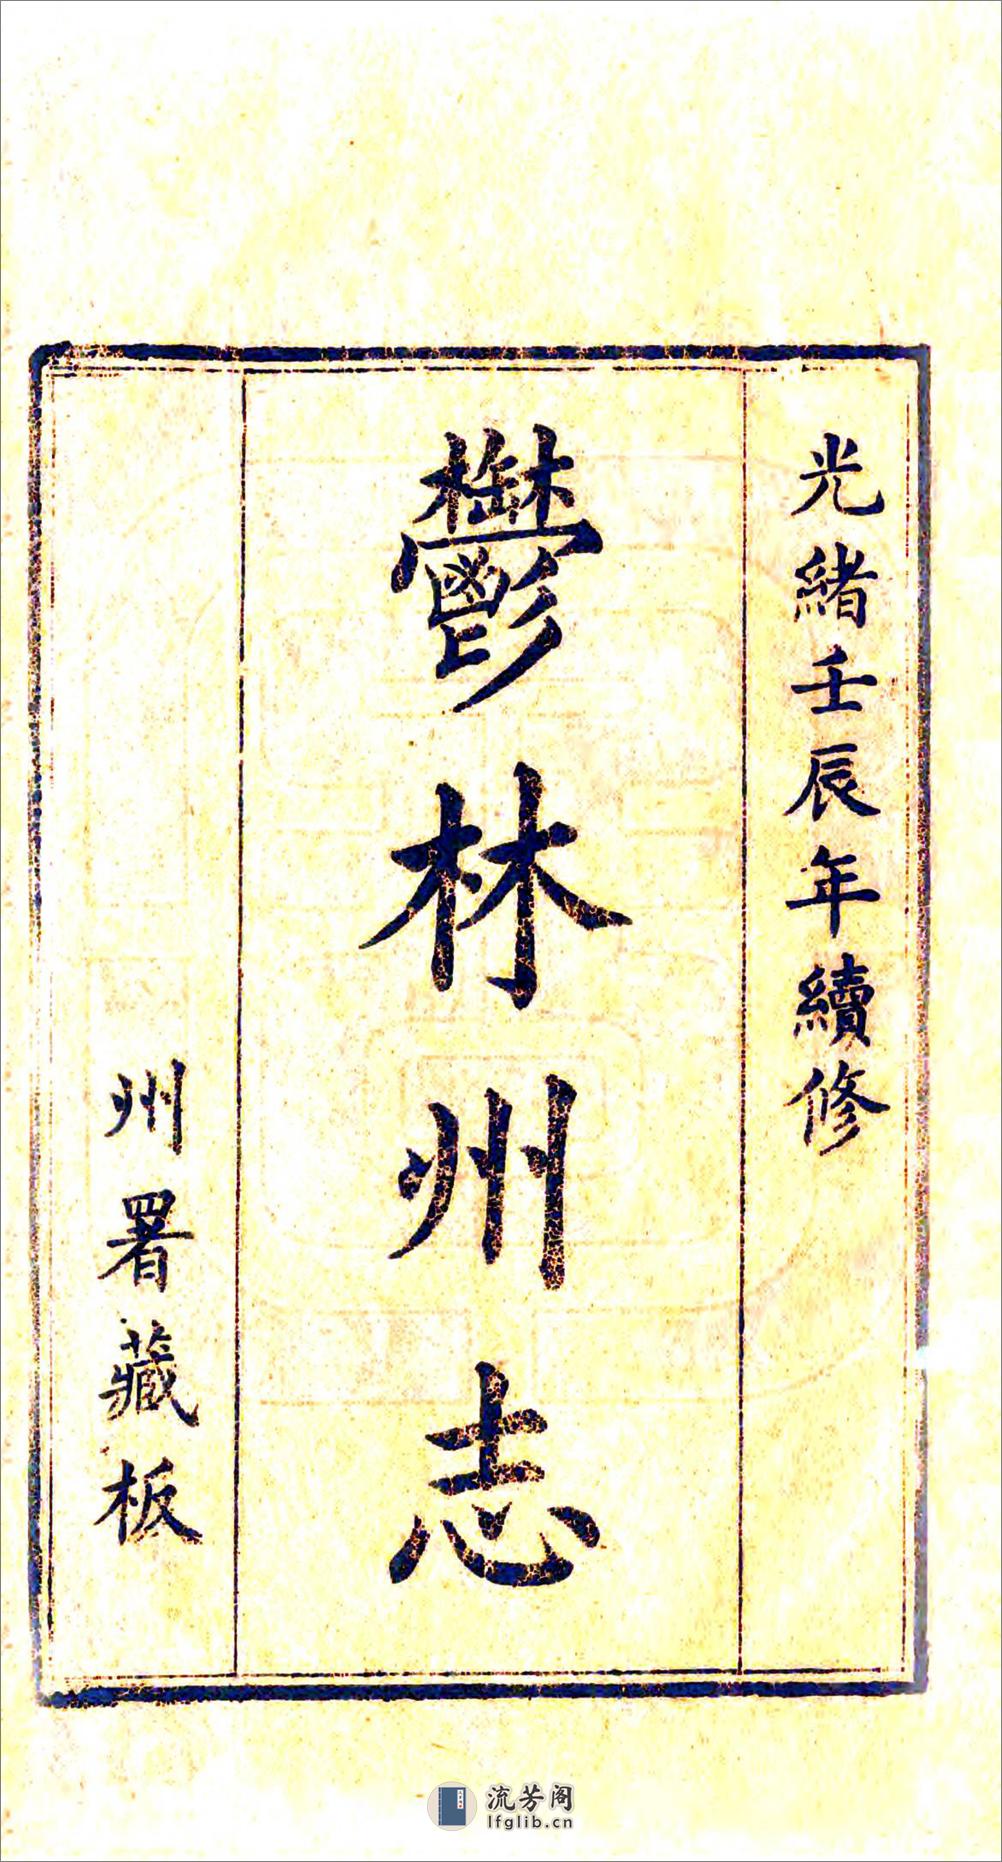 光緒壬辰年續修
鬱林州志
州署藏板
流芳阁
lfglib.cn